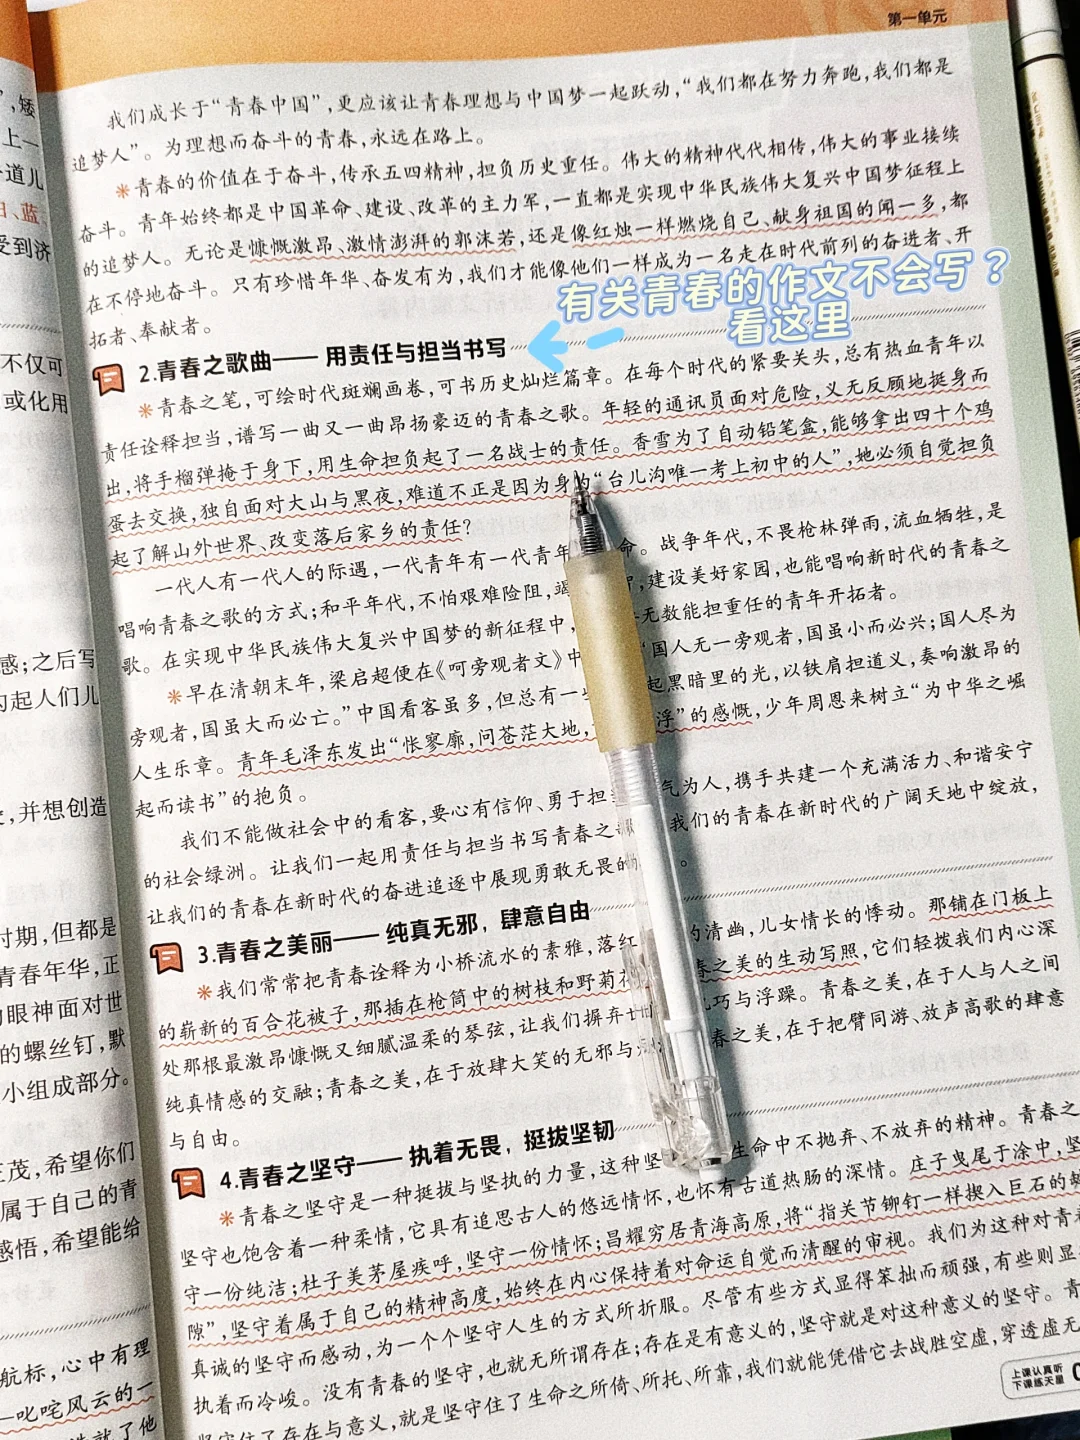 第一单元
我们成长于“青春中国”,更应该让青春理想与中国梦一起跃动,“我们都在努力奔跑,我们都是
追梦人”。为理想而奋斗的青春,永远在路上。
青春的价值在于奋斗,传承五四精神,担负历史重任。伟大的精神代代相传,伟大的事业接续
奋斗。青年始终都是中国革命、建设、改革的主力军,一直都是实现中华民族伟大复兴中国梦征程上
的追梦人。无论是慷慨激昂、激情澎湃的郭沫若,还是像红烛一样燃烧自己、献身祖国的闻一多,都
在不停地奋斗。只有珍惜年华、奋发有为,我们才能像他们一样成为一名走在时代前列的奋进者、开
拓者、奉献者。
有关青春的作文不会写?
看这里
2.青春之歌曲——用责任与担当书写
青春之笔,可绘时代斑斓画卷,可书历史灿烂篇章。在每个时代的紧要关头,总有热血青年以
责任诠释担当,谱写一曲又一曲昂扬豪迈的青春之歌。年轻的通讯员面对危险,义无反顾地挺身而
出,将手榴弹掩于身下,用生命担负起了一名战士的责任。香雪为了自动铅笔盒,能够拿出四十个鸡
蛋去交换,独自面对大山与黑夜,难道不正是因为身为“台儿沟唯一考上初中的人”,她必须自觉担负
起了解山外世界、改变落后家乡的责任?
一代人有一代人的际遇,一代青年有一代青年 命。战争年代,不畏枪林弹雨,流血牺牲,是
唱响青春之歌的方式;和平年代,不怕艰难险阻, ,建设美好家园,也能唱响新时代的青春之
歌。在实现中华民族伟大复兴中国梦的新征程中, 无数能担重任的青年开拓者。
早在清朝末年,梁启超便在《呵旁观者文》中 “国人无一旁观者,国虽小而必兴;国人尽为
旁观者,国虽大而必亡。”中国看客虽多,但总有一 起黑暗里的光,以铁肩担道义,奏响激昂的
人生乐章。青年毛泽东发出“怅寥廓,问苍茫大地, 浮”的感慨,少年周恩来树立“为中华之崛
起而读书”的抱负。
我们不能做社会中的看客,要心有信仰、勇于担 气为人,携手共建一个充满活力、和谐安宁
的社会绿洲。让我们一起用责任与担当书写青春之 我们的青春在新时代的广阔天地中绽放,
让我们的青春在新时代的奋进追逐中展现勇敢无畏的 。
3.青春之美丽——纯真无邪,肆意自由
我们常常把青春诠释为小桥流水的素雅,落红 的清幽,儿女情长的悸动。那铺在门板上
的崭新的百合花被子,那插在枪筒中的树枝和野菊花 春之美的生动写照,它们轻拨我们内心深
处那根最激昂慷慨又细腻温柔的琴弦,让我们摒弃 巧与浮躁。青春之美,在于人与人之间
纯真情感的交融;青春之美,在于放肆大笑的无邪与 春之美,在于把臂同游、放声高歌的肆意
与自由。
4.青春之坚守——执着无畏,挺拔坚韧
青春之坚守是一种挺拔与坚执的力量,这种坚 生命中不抛弃、不放弃的精神。青春之
坚守也饱含着一种柔情,它具有追思古人的悠远情怀,也怀有古道热肠的深情。庄子曳尾于涂中,坚
守一份纯洁;杜子美茅屋疾呼,坚守一份情怀;昌耀穷居青海高原,将“指关节铆钉一样楔入巨石的
隙”,坚守着属于自己的精神高度,始终在内心保持着对命运自觉而清醒的审视。我们为这种对青
真诚的坚守而感动,为一个个坚守人生的方式所折服。尽管有些方式显得笨拙而顽强,有些则显
执着而冷峻。没有青春的坚守,也就无所谓存在;存在是有意义的,坚守就是对这种意义的坚守。青
坚守住了存在与意义,就是坚守住了生命之所倚、所托、所靠,我们就能凭借它去战胜空虚,穿透虚无
上课认真听
下课练天星
”,矮
上一
道儿
日、蓝
受到济
不仅可
或化用
感;之后写
勾起人们儿
,并想创造
时期,但都是
青春年华,正
的眼神面对世
的螺丝钉,默
小组成部分。
正茂,希望你们
属于自己的青
感悟,希望能给
航标,心中有理
—叱咤风云的一
造就了他